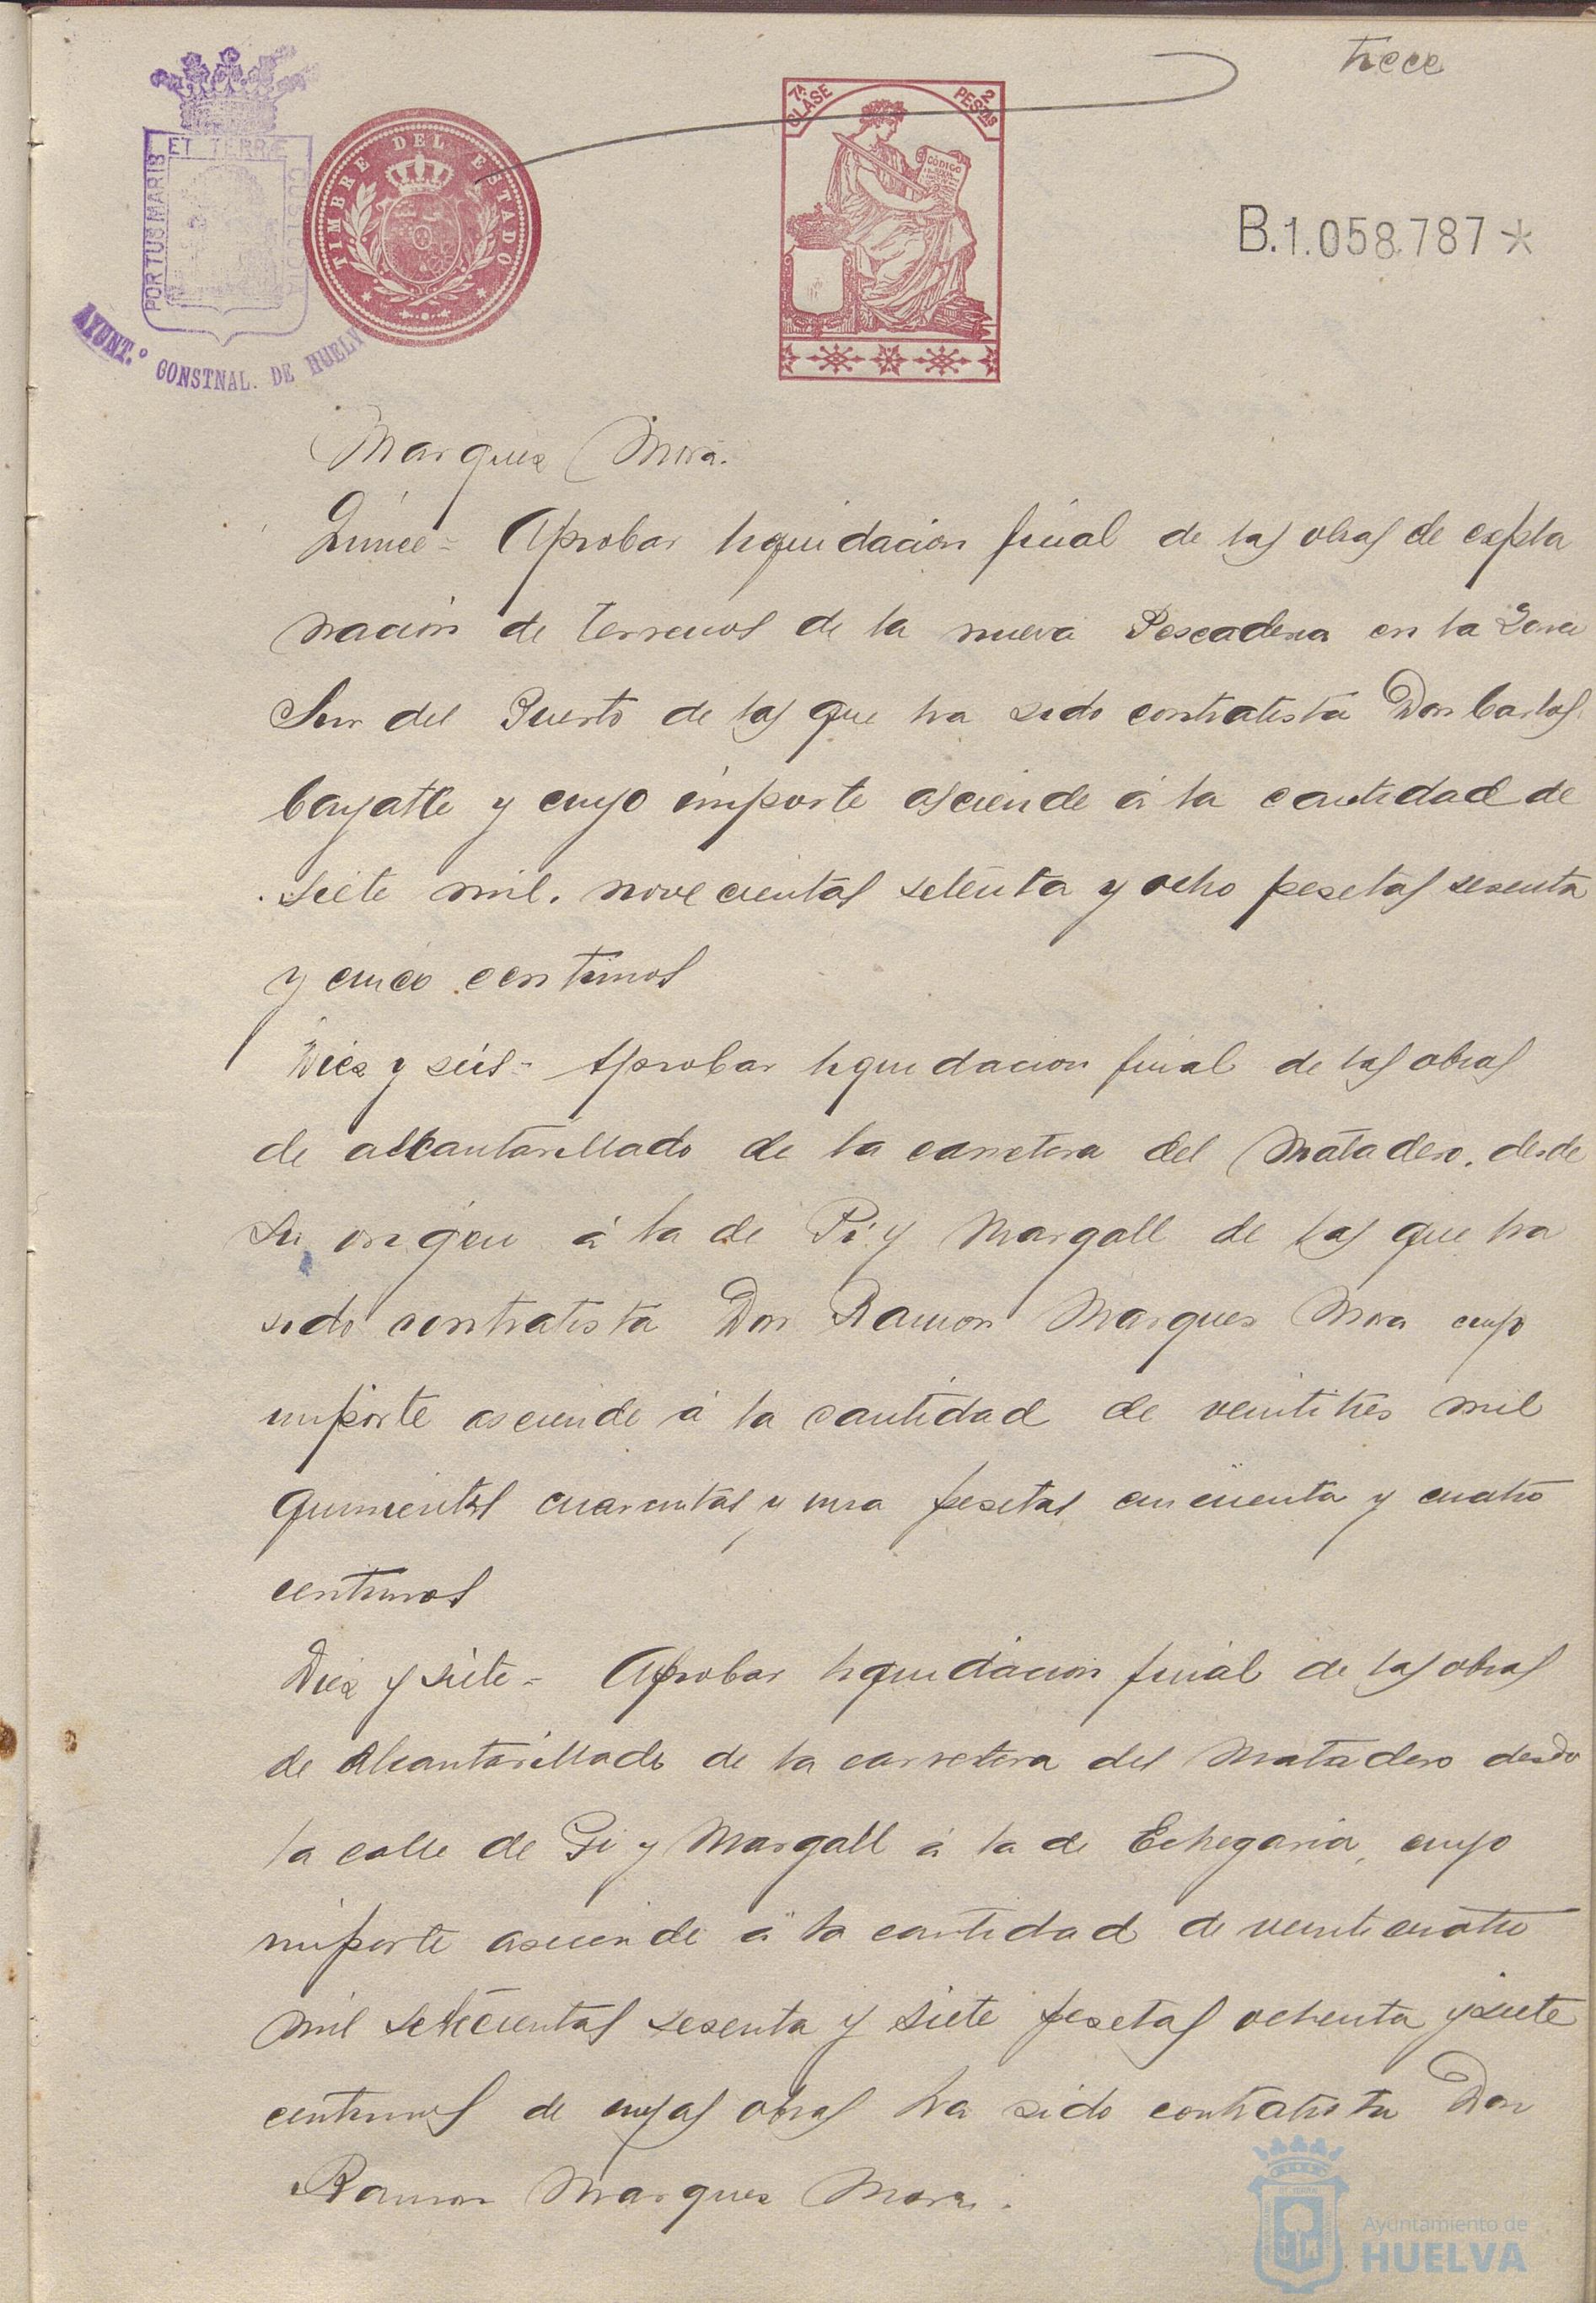 trece
ET TERRÆ
PORTUS MARIS
CUSTODIA
AYUNT.º CONSTNAL. DE HUELV
TIMBRE DEL ESTADO
7ª CLASE
2 PESTAS
CÓDIGO
B.1.058.787*
Marquez Mora.
Quince = Aprobar liquidacion final de las obras de expla
nación de terrenos de la nueva Pescaderia en la Zona
Sur del Puerto de las que ha sido contratista Don Carlos
Cayatte y cuyo importe asciende á la cantidad de
siete mil. novecientas setenta y ocho pesetas sesenta
y cinco centimos
Diez y seis = Aprobar liquidacion final de las obras
de alcantarillado de la carretera del Matadero. desde
su origen á la de Pi y Margall de las que ha
sido contratista Don Ramon Marques Mora cuyo
importe asciende á la cantidad de veintitres mil
quinientas cuarentas y una pesetas cincuenta y cuatro
centimos
Diez y siete = Aprobar liquidacion final de las obras
de Alcantarillado de la carretera del Matadero desde
la calle de Pi y Margall á la de Echegaria, cuyo
importe asciende á la cantidad de veinticuatro
mil setecientas sesenta y siete pesetas ochenta y siete
centimos de cuyas obras ha sido contratista Don
Ramon Marquez Mora.
Ayuntamiento de
HUELVA